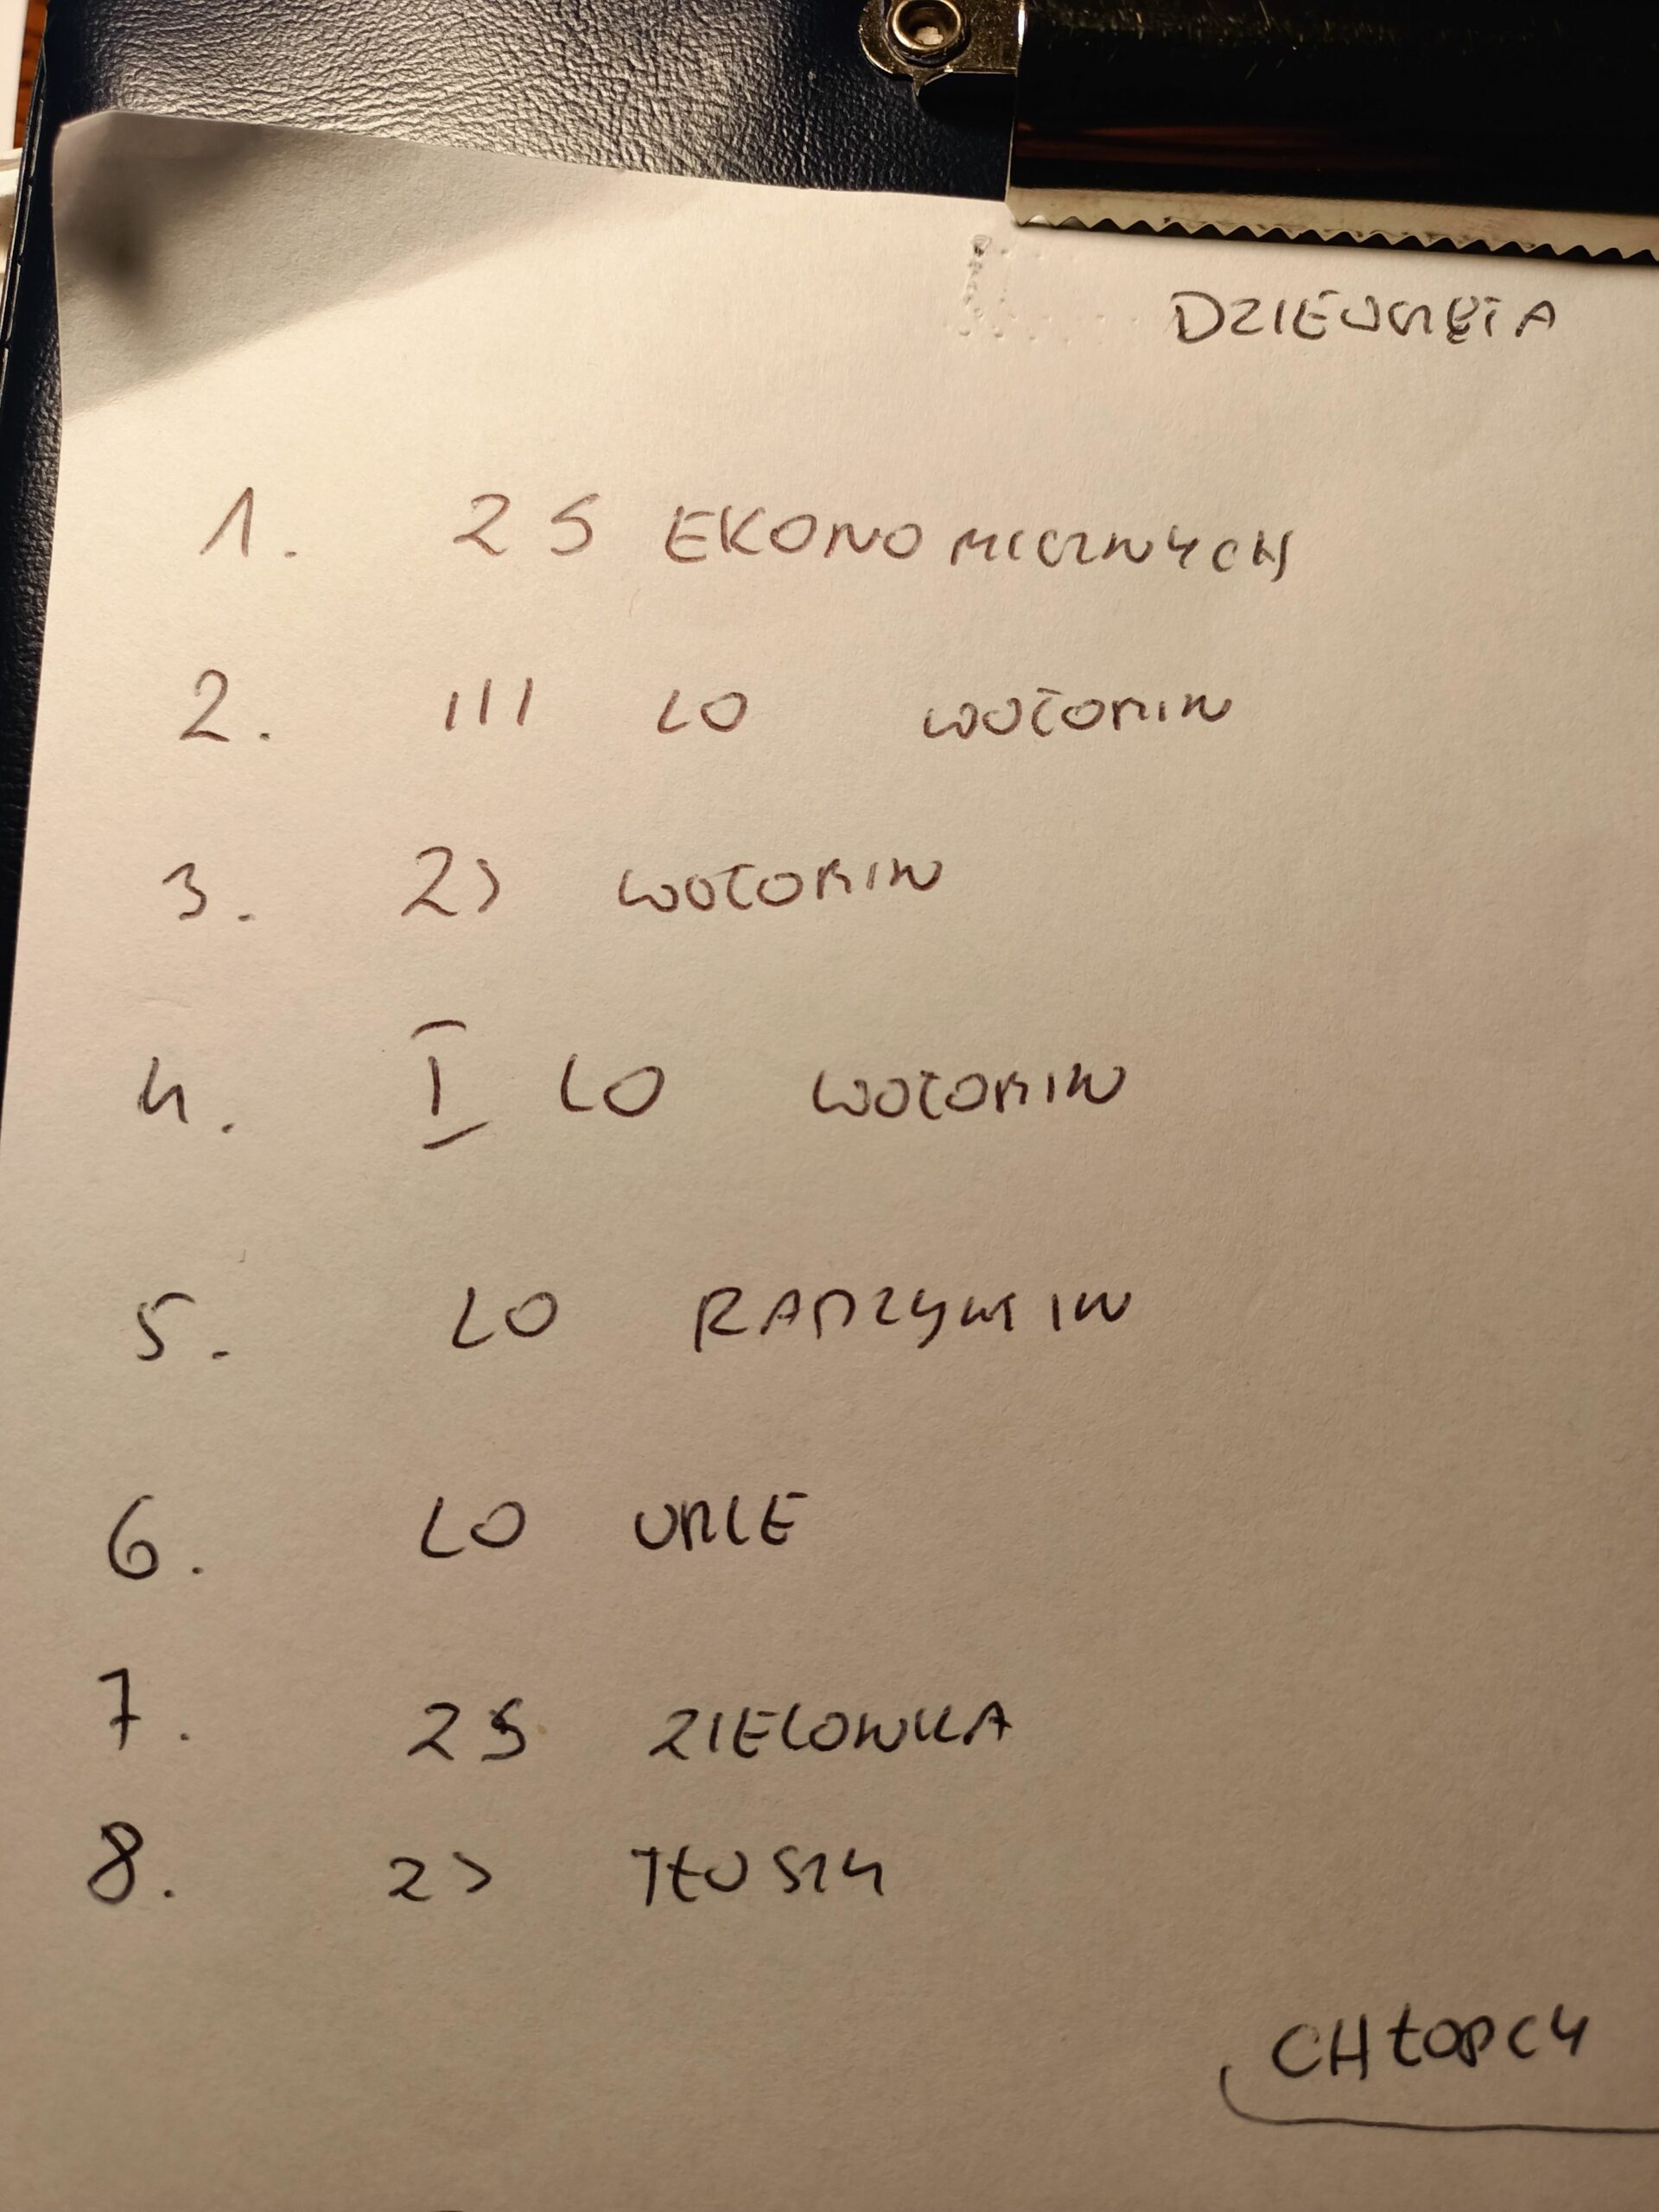 DZIEWCZĘTA
1. ZS EKONOMICZNYCH
2. III LO WOŁOMIN
3. ZS WOŁOMIN
4. I LO WOŁOMIN
5. LO RADZYMIN
6. LO URLE
7. ZS ZIELONKA
8. ZS TŁUSZCZ
CHŁOPCY